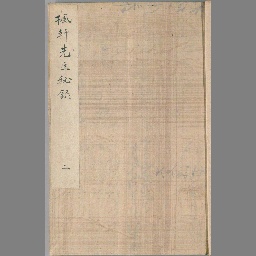 楓軒先生秘録
二